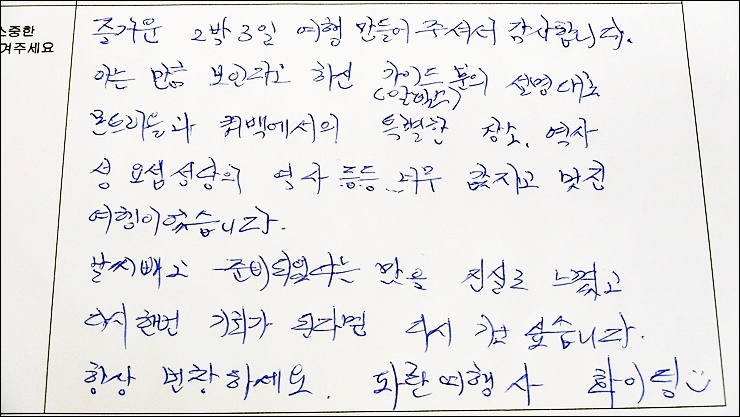 소중한
겨주세요
즐거운 2박3일 여행 만들어 주셔서 감사합니다.
아는 만큼 보인다고 하신 가이드 분의 설명대로
몬트리올과 퀘백에서의 특별한 장소, 역사
성 요셉성당의 역사 등등 너무 값지고 멋진
여행이었습니다.
준비되었다는 말을 진실로 느꼈고
다시 한번 기회가 된다면 다시 가고 싶습니다.
항상 번창하세요. 파란여행사 화이팅